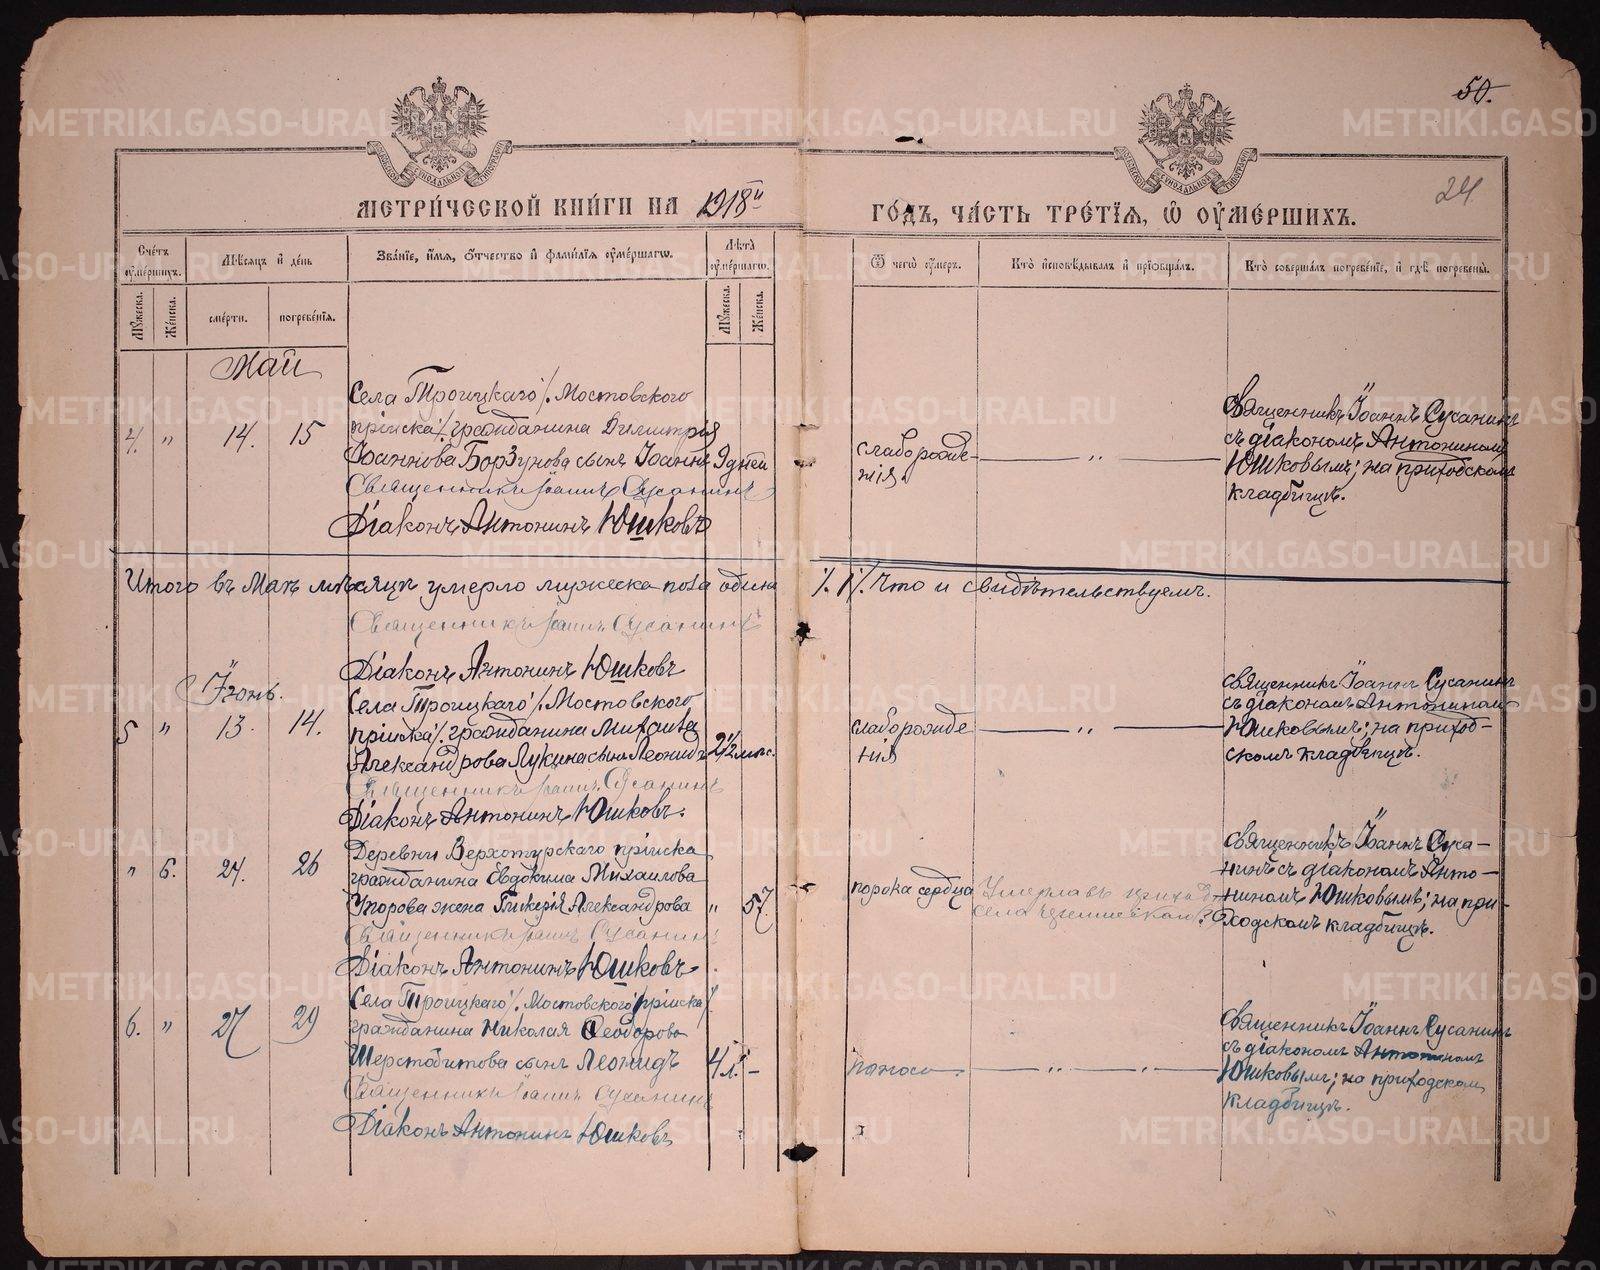 50.
24
МЕТРИЧЕСКОЙ КНИГИ НА 1918й ГОДЪ, ЧАСТЬ ТРЕТІЯ, Ѿ ОУМЕРШИХЪ.
Счетъ оумершихъ.
Мужеска.
Женска.
Мѣсяцъ и день
смерти.
погребенія.
Званіе, имя, отчество и фамилія оумершагω.
Лѣта оумершагω.
Мужеска.
Женска.
Ѿ чегω оумеръ.
Кто исповѣдывалъ и пріωбщалъ.
Кто совершалъ погребеніе, и гдѣ погребены.
Май
4. " 14. 15
Села Троицкаго /. Мостовского
пріиска /. гражданина Димитрія
Іоаннова Борзунова сынъ Іоаннъ
9 дней
Священникъ Іоаннъ Сусанинъ
Діаконъ Антонинъ Юшковъ
слаборожде-
нія.
— " —
Священникъ Іоаннъ Сусанинъ
съ діакономъ Антониномъ
Юшковымъ; на приходскомъ
кладбищѣ.
Итого въ Маѣ мѣсяцѣ умерло мужеска пола одинъ /. 1 /. Что и свидѣтельствуемъ.
Священникъ Іоаннъ Сусанинъ
Діаконъ Антонинъ Юшковъ
Іюнь.
5 " 13. 14.
Села Троицкаго /. Мостовского
пріиска /. гражданина Михаила
Александрова Лукина сынъ Леонидъ
2 1/2 мѣс.
Священникъ Іоаннъ Сусанинъ
Діаконъ Антонинъ Юшковъ.
слаборожде
нія
— " —
Священникъ Іоаннъ Сусанинъ
съ діакономъ Антониномъ
Юшковымъ; на приход-
скомъ кладбищѣ.
" 6. 24. 26
Деревни Верхотурскаго пріиска
гражданина Евдокима Михаилова
Упорова жена Гликерія Александрова
" 57
Священникъ Іоаннъ Сусанинъ
Діаконъ Антонинъ Юшковъ
порока сердца
Умерла въ приходѣ
села
Священникъ Іоаннъ Суса-
нинъ съ діакономъ Анто-
ниномъ Юшковымъ; на при-
ходскомъ кладбищѣ.
6. " 27 29
Села Троицкаго /. Мостовского пріиска /.
гражданина Николая Ѳеодорова
Шерстобитова сынъ Леонидъ
4 л. –
Священникъ Іоаннъ Сусанинъ
Діаконъ Антонинъ Юшковъ
поноса
— " — " —
Священникъ Іоаннъ Сусанинъ
съ діакономъ Антониномъ
Юшковымъ; на приходскомъ
кладбищѣ.
METRIKI.GASO-URAL.RU